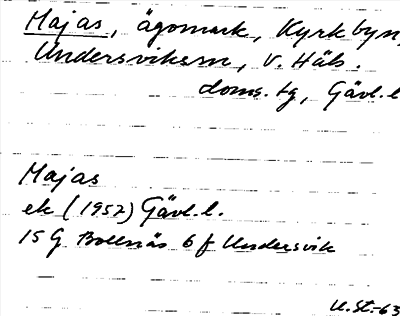 Majas, ägomark, Kyrkbyn,
Undersviksm, V. Häls.
doms. tg, Gävl. l
Majas
ek (1952) Gävl. l.
15 G Bollnäs 6 f Undersvik
U.St.-63